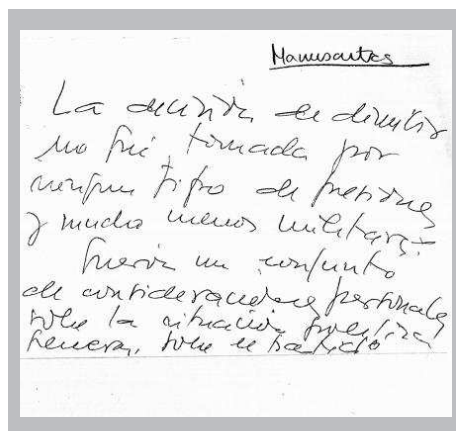 Manuscritos
La decisión de dimitir
no fué tomada por
ningun tipo de presiones
y mucho menos militares -
fueron un conjunto
de consideraciones personales
sobre la situación política
general, sobre el partido